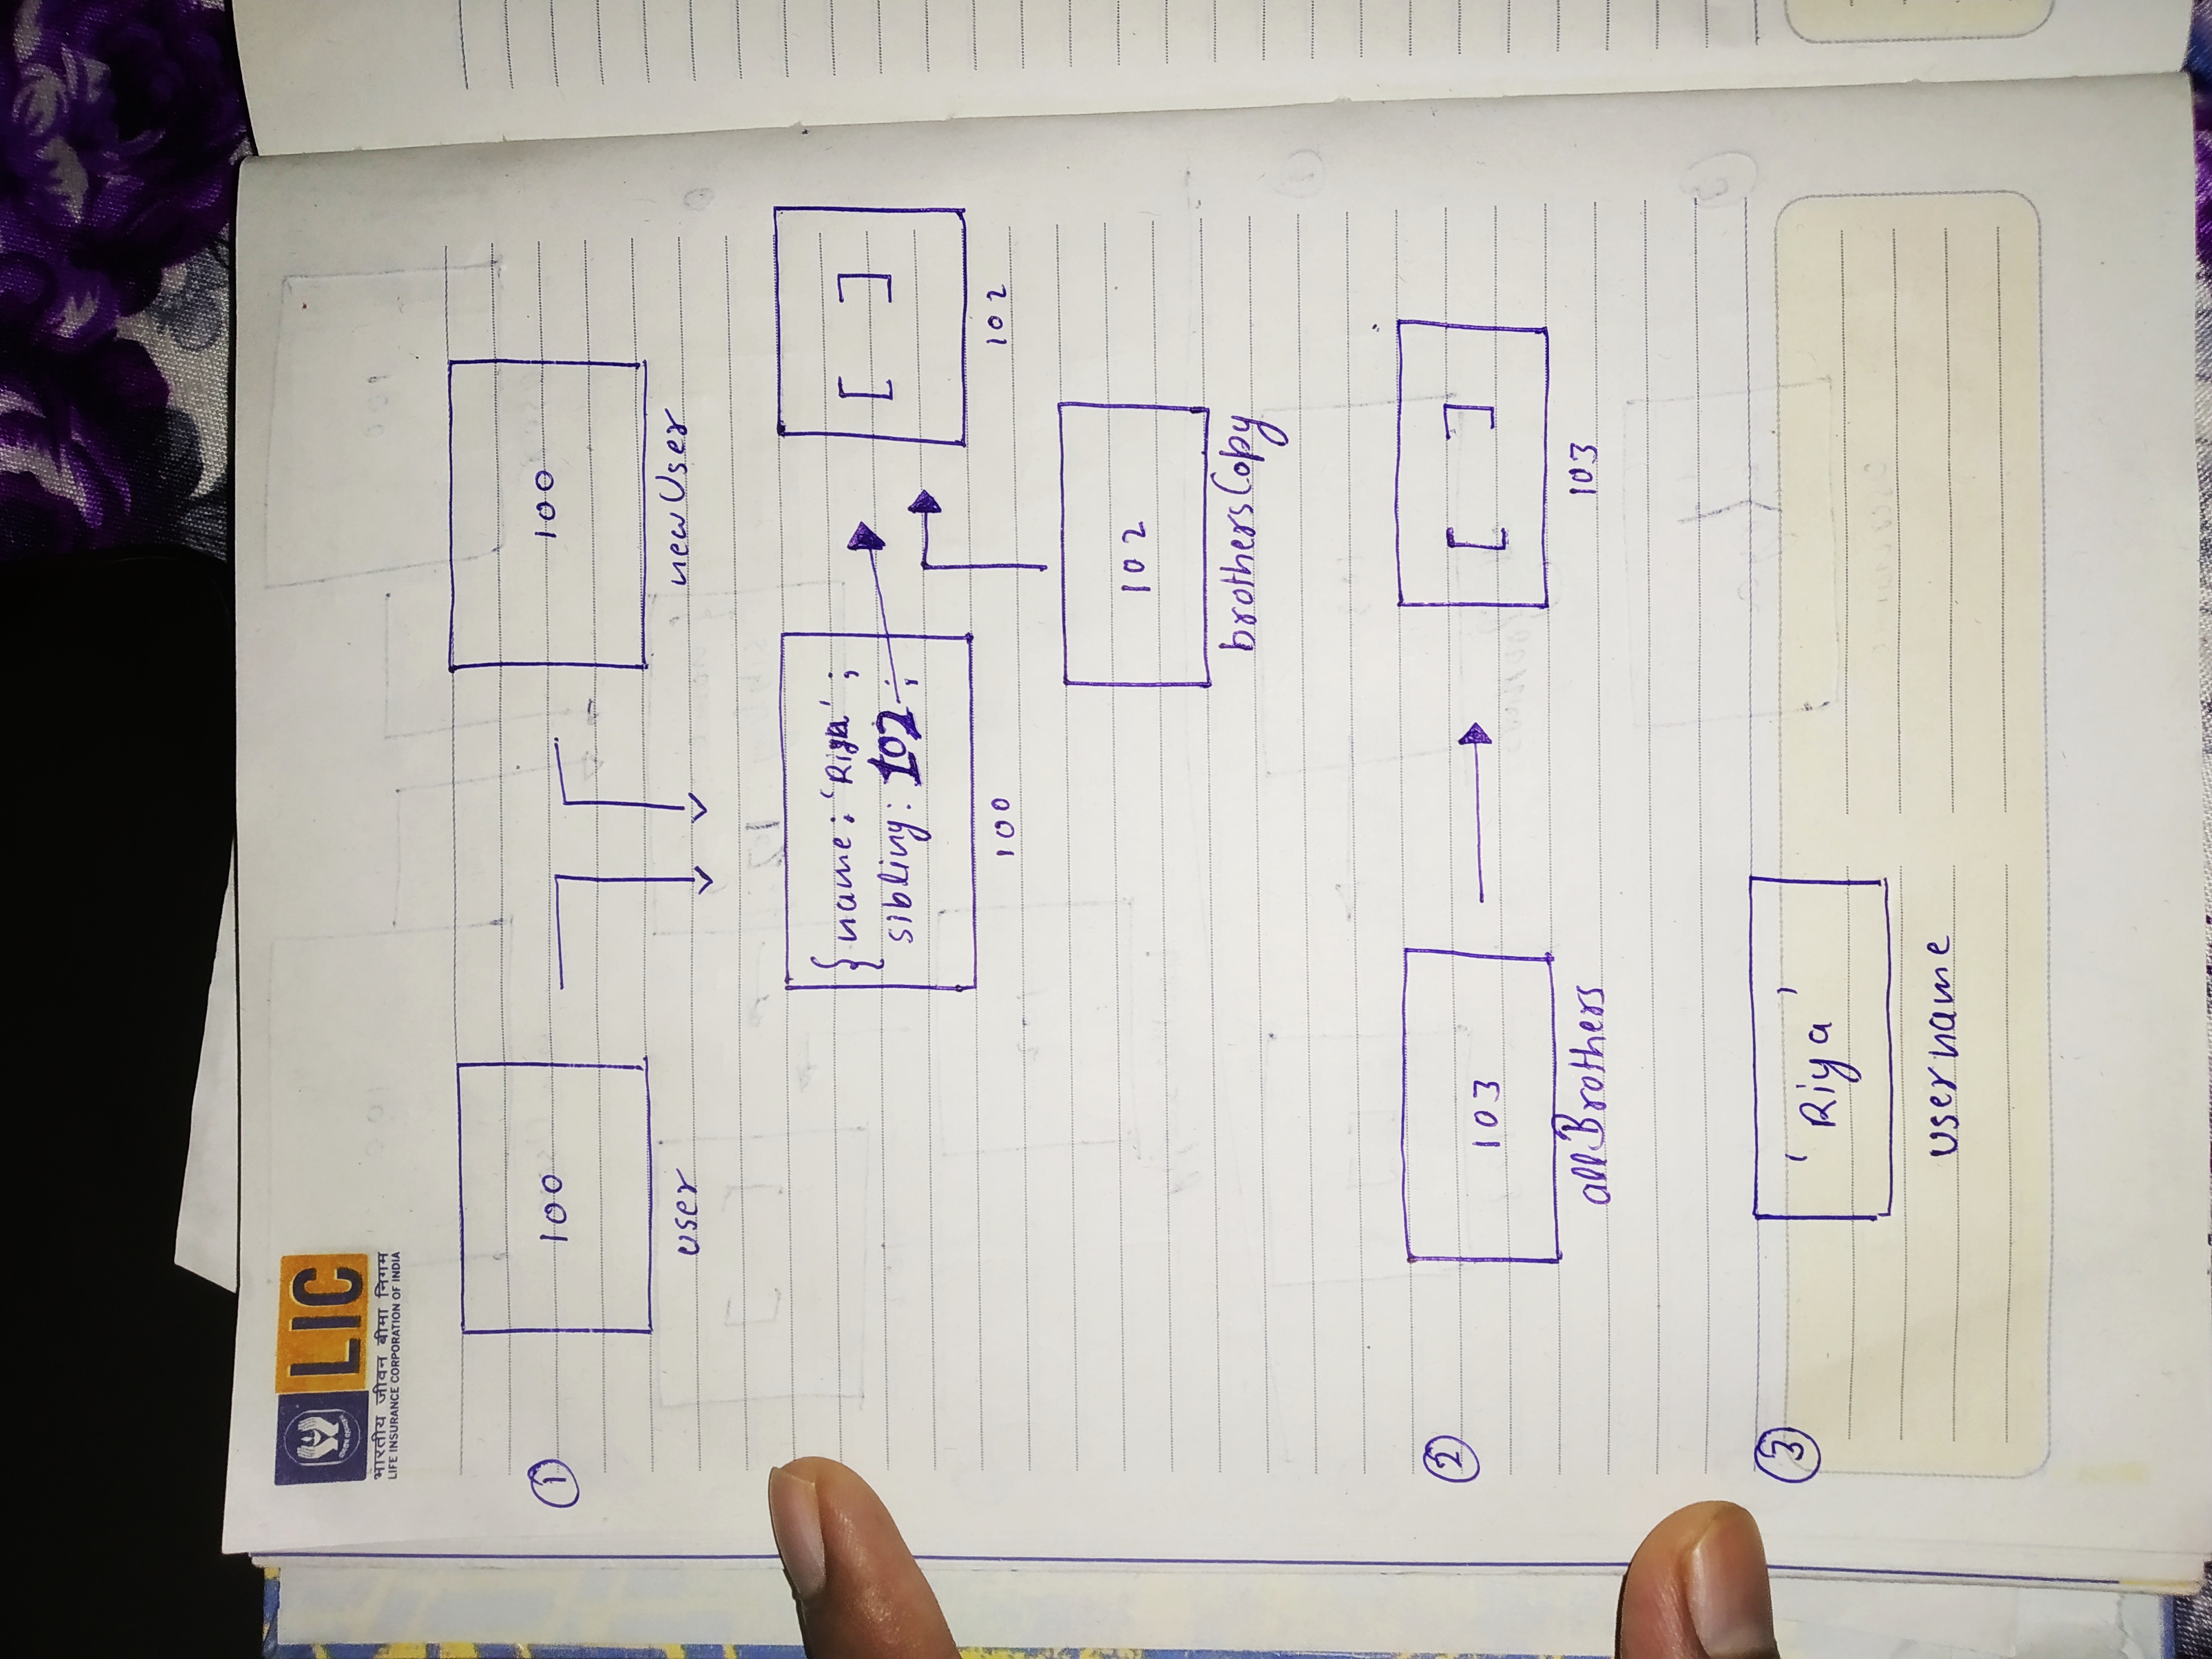 LIC
भारतीय जीवन बीमा निगम
LIFE INSURANCE CORPORATION OF INDIA
①
100
100
user
newUser
{ name: 'Riya' ;
sibling: 102 ;
[ ]
100
102
102
brothersCopy
②
103
[ ]
allBrothers
103
③
'Riya'
username